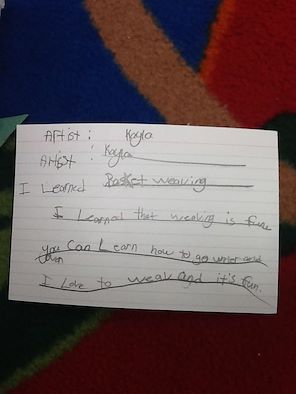 Artist : Kayla
Artist : Kayla
I Learned Basket weaving
I Learned that weaving is fun
you Can Learn how to go under and
over
I Love to weav and it's fun.